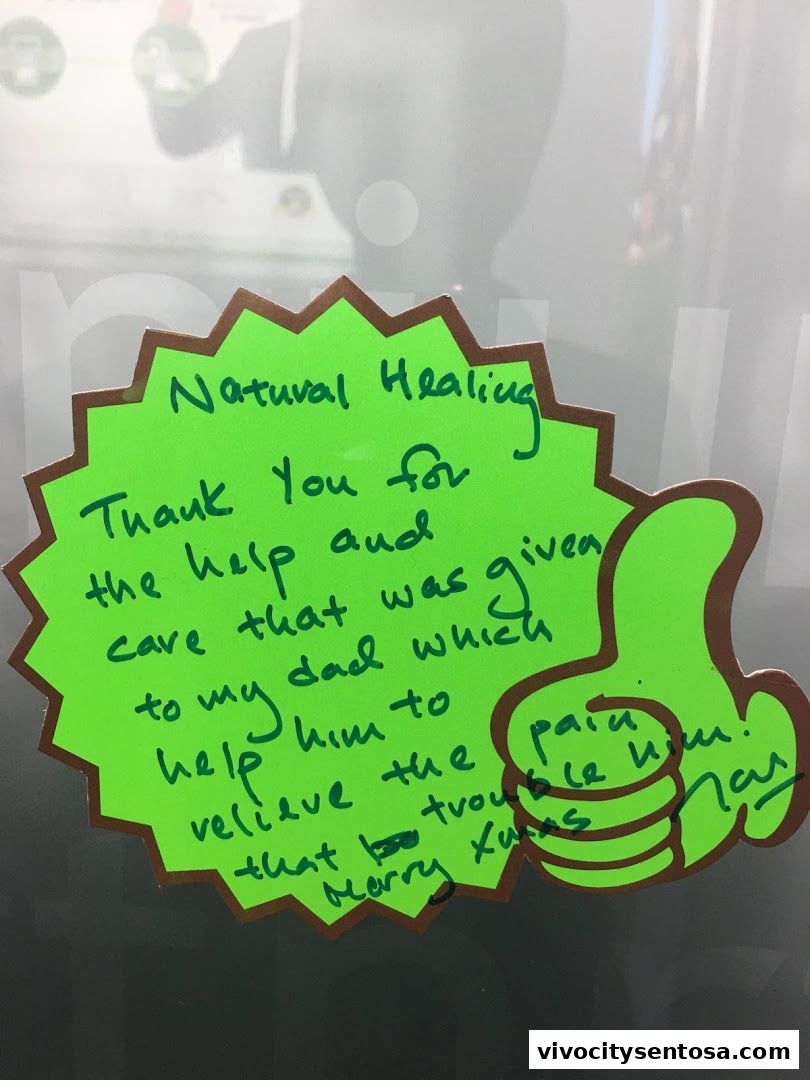 Natural Healing
Thank You for
the help and
care that was given
to my dad which
help him to
relieve the pain
that trouble him.
Merry Xmas
vivocitysentosa.com